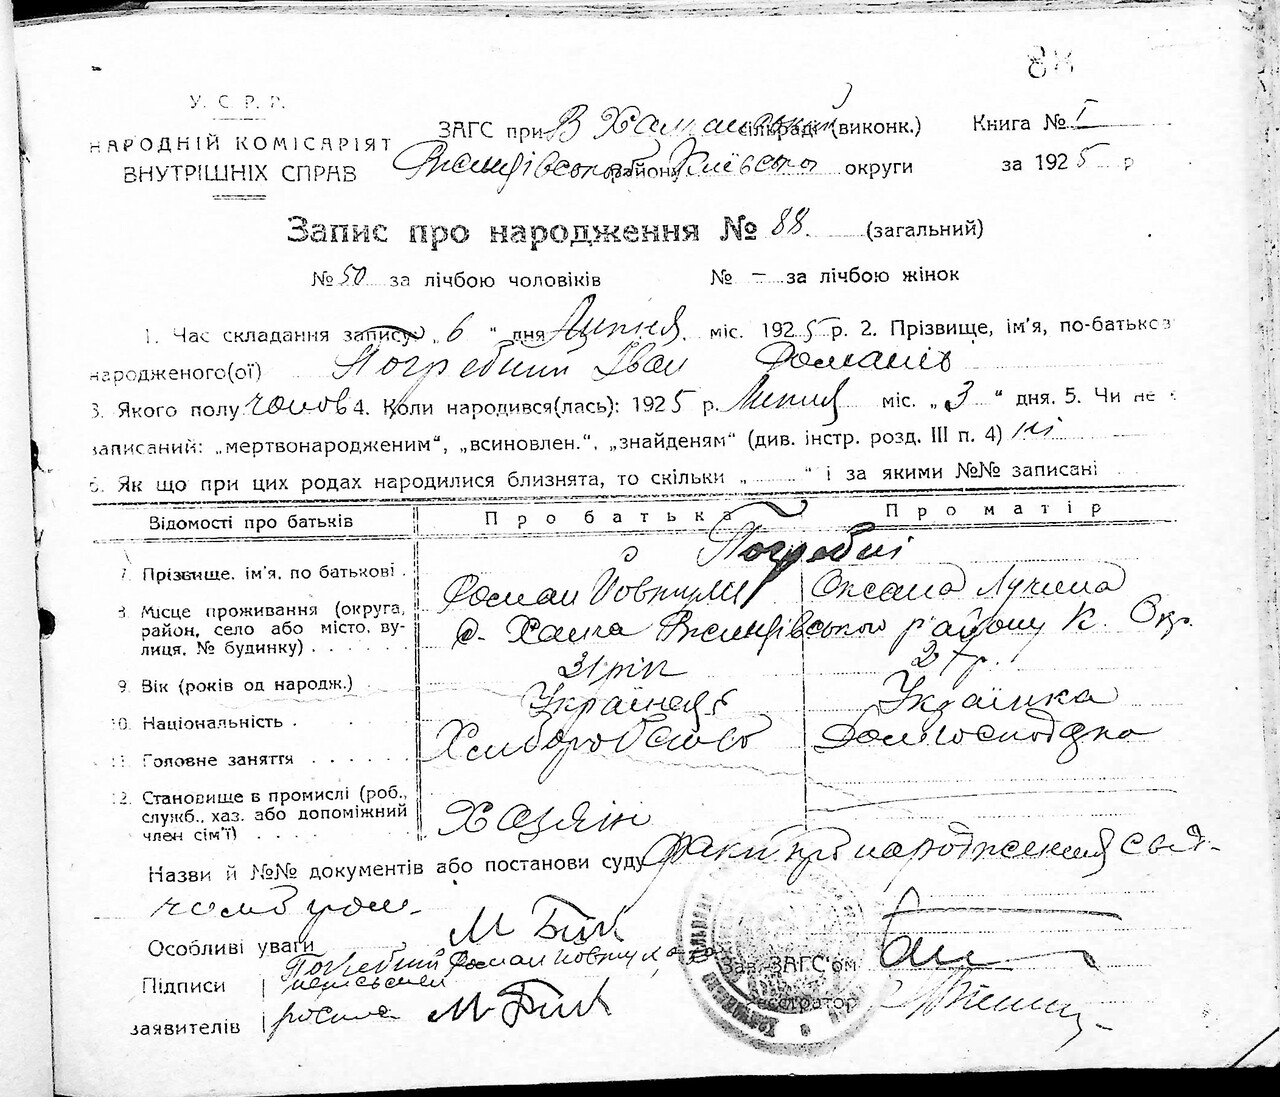 88
У. С. Р. Р.
НАРОДНІЙ КОМІСАРІЯТ
ВНУТРІШНІХ СПРАВ
ЗАГС при В сільраді (виконк.) Книга № I
району Київсько округи за 1925 р
Запис про народження № 88. (загальний)
№ 50 за лічбою чоловіків № — за лічбою жінок
1. Час складання запису „ 6 “ дня Липня міс. 1925 р. 2. Прізвище, ім'я, по-батькові
народженого(ої) Погребний Іван Романів
3. Якого полу чолов 4. Коли народився(лась): 1925 р. Липня міс. „ 3 “ дня. 5. Чи не є
записаний: „мертвонародженим“, „всиновлен.“, „знайденям“ (див. інстр. розд. III п. 4) ні
6. Як що при цих родах народилися близнята, то скільки „ “ і за якими №№ записані
Відомості про батьків Про батька Про матір
Погребні
7. Прізвище, ім'я, по батькові . Роман Оксана Лукина
8. Місце проживання (округа, район, село або місто, вулиця, № будинку) с. району К. Окр.
9. Вік (років од народж.) 31 рік 27 р.
10. Національність Українець Українка
11. Головне заняття Хліборобство Домгосподарка
12. Становище в промислі (роб., служб., хаз. або допоміжний член сім'ї) Хазяін
Назви й №№ документів або постанови суду факт про народження свід-
Особливі уваги М Бик
Підписи Погребний Роман
заявителів М. Бик
Зав. ЗАГС'ом
Реєстратор